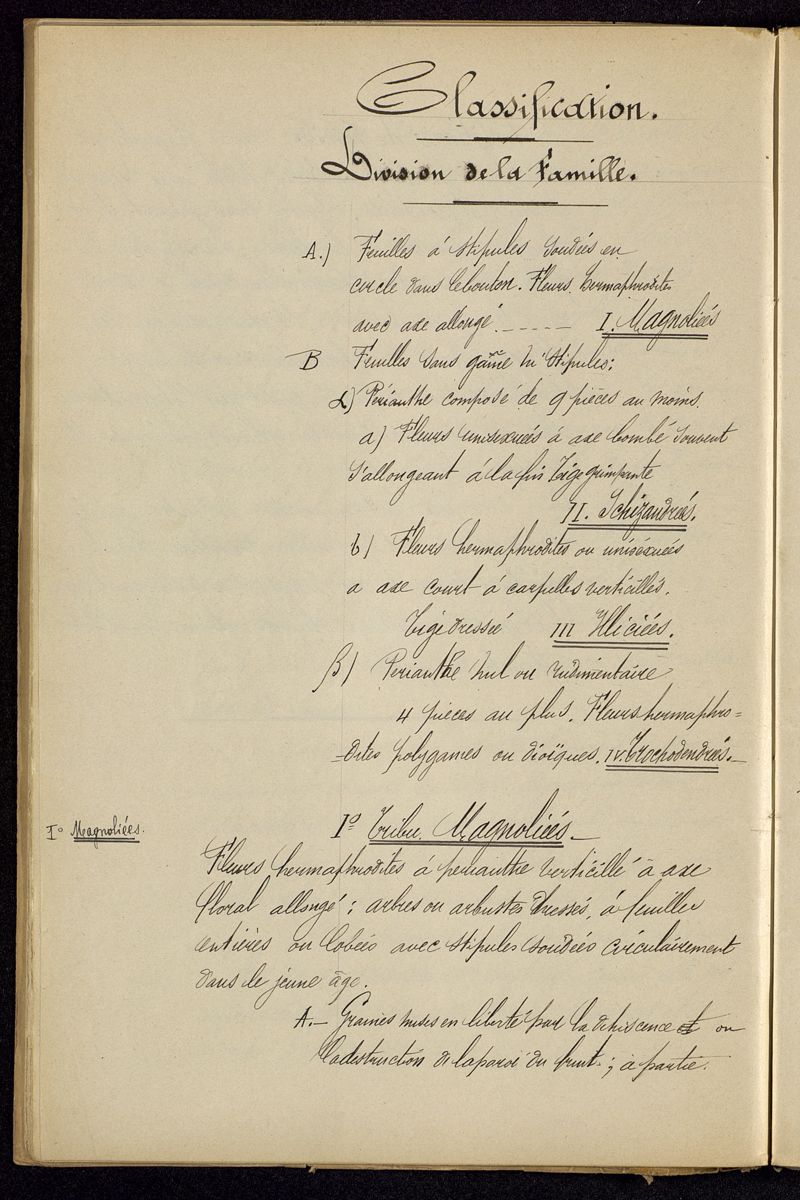 Classification.
Division de la Famille.
A.) Feuilles à stipules soudées en
cercle dans le bouton. Fleurs hermaphrodites
avec axe allongé. ----- I. Magnoliées
B Feuilles sans gaîne ni stipules:
α) Périanthe composé de 9 pièces au moins.
a) Fleurs unisexuées à axe bombé souvent
s'allongeant à la fin Tige grimpante
II. Schizandrées.
b) Fleurs hermaphrodites ou unisexuées
a axe court à carpelles verticillés.
Tige dressée III Illiciées.
β) Perianthe nul ou rudimentaire
4 pièces au plus. Fleurs hermaphro=
=dites polygames ou dioïques. IV. Trochodendrées.—
I° Magnoliées.
I° Tribu. Magnoliées.—
Fleurs hermaphrodites à perianthe verticillé à axe
floral allongé; arbres ou arbustes dressés, à feuilles
entières ou lobées avec stipules soudées circulairement
dans le jeune âge.
A.— Graines mises en liberté par la dehiscence ou
la destruction de la paroi du fruit; à partie